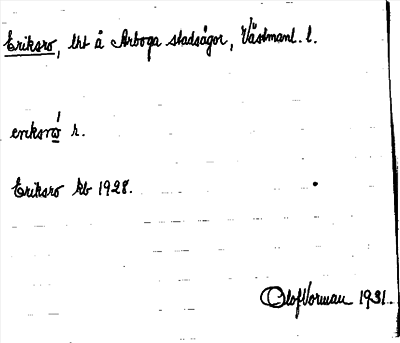 Eriksro, lht å Arboga stadsägor, Västmanl. l.
eriksró r.
Eriksro kb 1928.
Olof Vorman 1931.